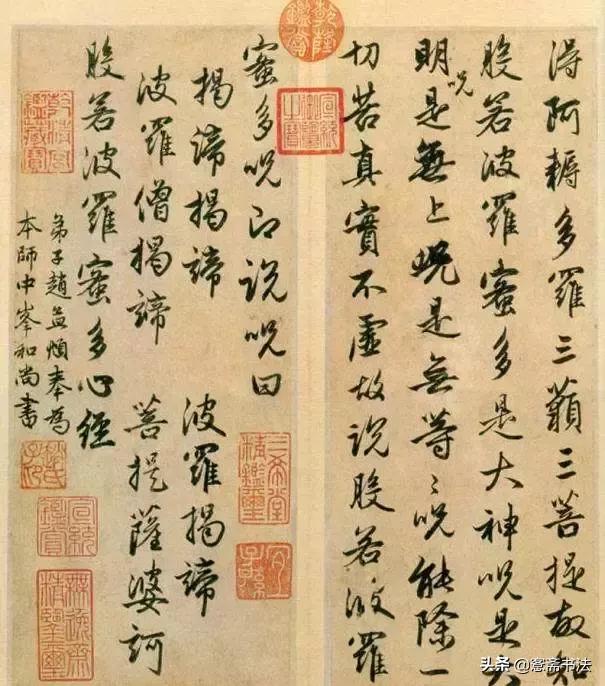 得阿耨多羅三藐三菩提故知
般若波羅蜜多是大神呪是大
明呪是無上呪是無等〻呪能除一
切苦真實不虛故說般若波羅
蜜多呪即說呪曰
揭諦揭諦 波羅揭諦
波羅僧揭諦 菩提薩婆訶
般若波羅蜜多心經
弟子趙孟頫奉為
本師中峯和尚書
乾隆鑑賞
三希堂精鑑璽
宜子孫
宣統鑑賞
無逸齋精鑑璽
头条
斋书法